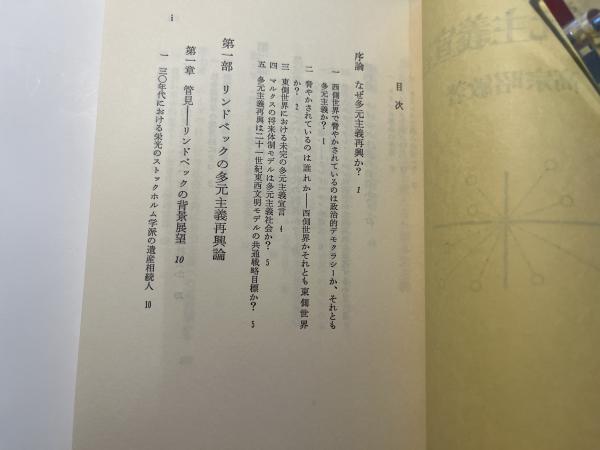 目次
序論 なぜ多元主義再興か? 1
一 西側世界で脅やかされているのは政治的デモクラシーか、それとも
多元主義か? 1
二 脅やかされているのは誰れか——西側世界かそれとも東側世界
か? 2
三 東側世界における未完の多元主義宣言 4
四 マルクスの将来体制モデルは多元主義社会か? 5
五 多元主義再興は二十一世紀東西文明モデルの共通戦略目標か? 5
第一部 リンドベックの多元主義再興論
第一章 管見——リンドベックの背景展望 10
一 三〇年代における栄光のストックホルム学派の遺産相続人 10